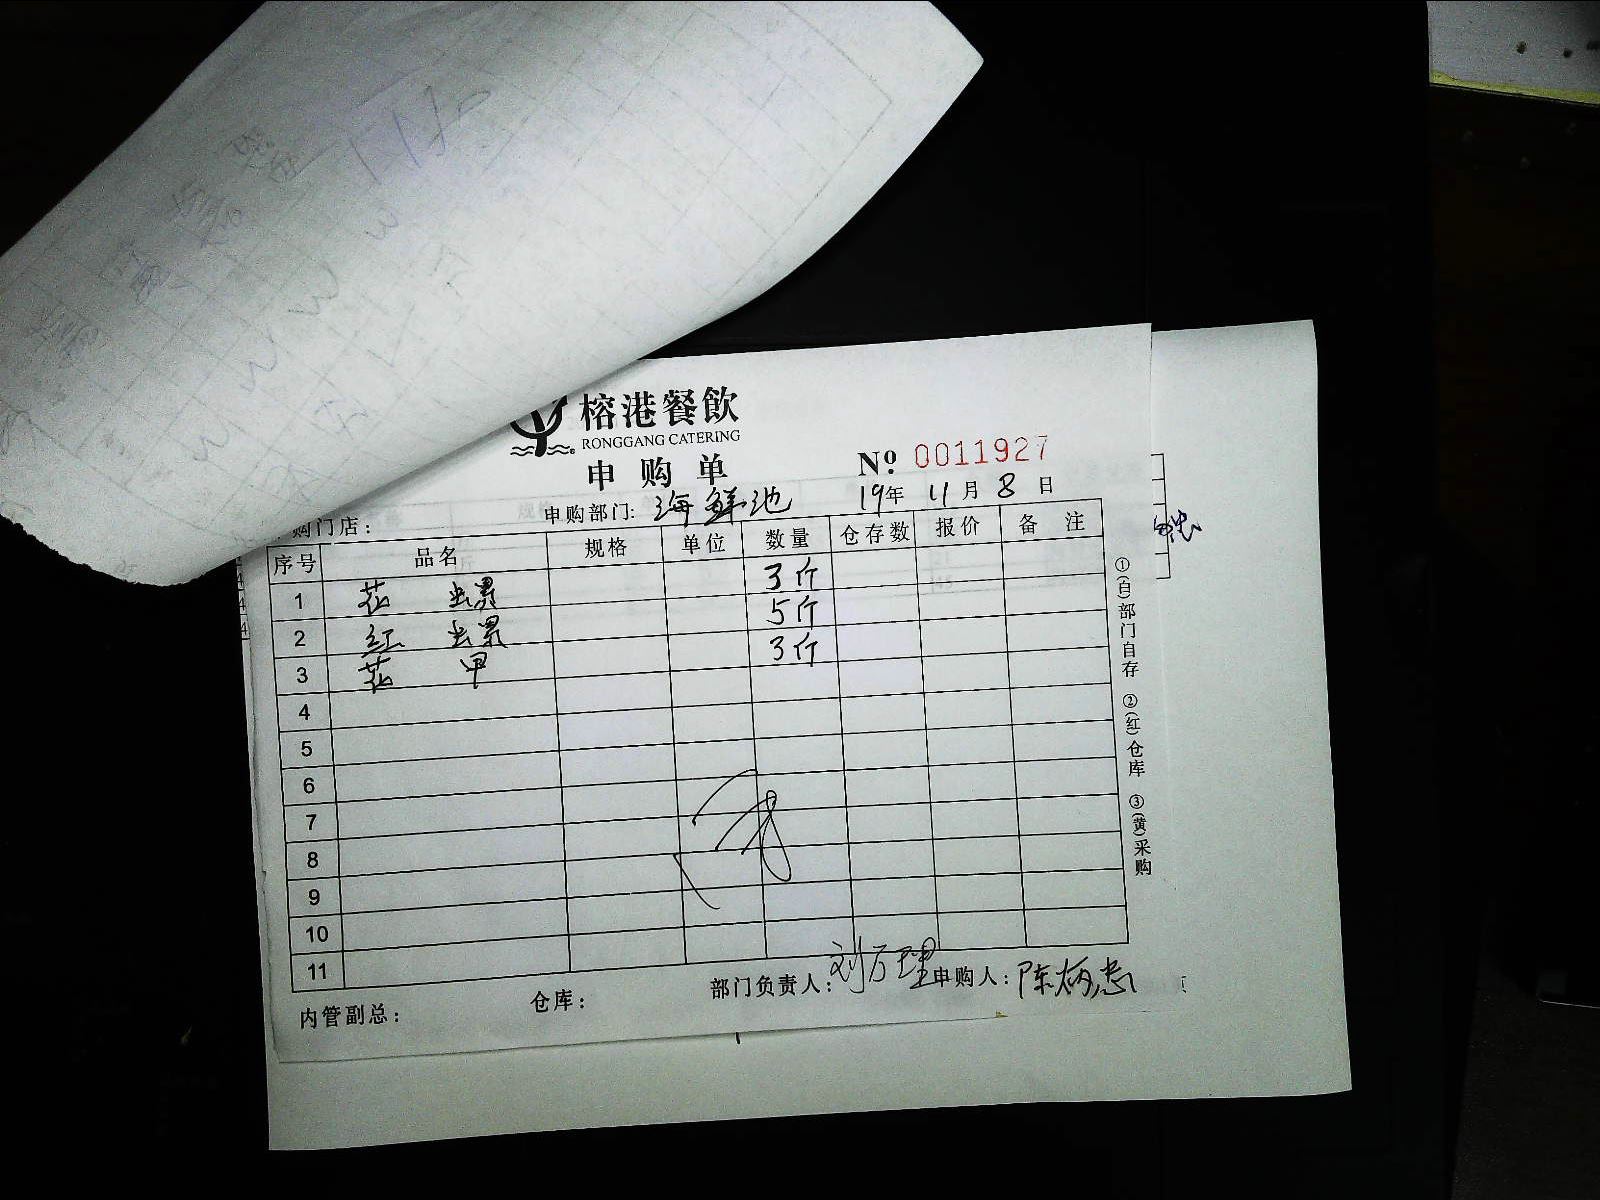 榕港餐飲
RONGGANG CATERING
申购单
№ 0011927
购门店： 申购部门: 海鲜池 19年 11月 8日
序号 品名 规格 单位 数量 仓存数 报价 备注
1 花螺 3斤
2 红螺 5斤
3 花甲 3斤
4
5
6
7
8
9
10
11
内管副总： 仓库： 部门负责人： 刘万理 申购人： 陈炳忠
①(白)部门自存 ②(红)仓库 ③(黄)采购